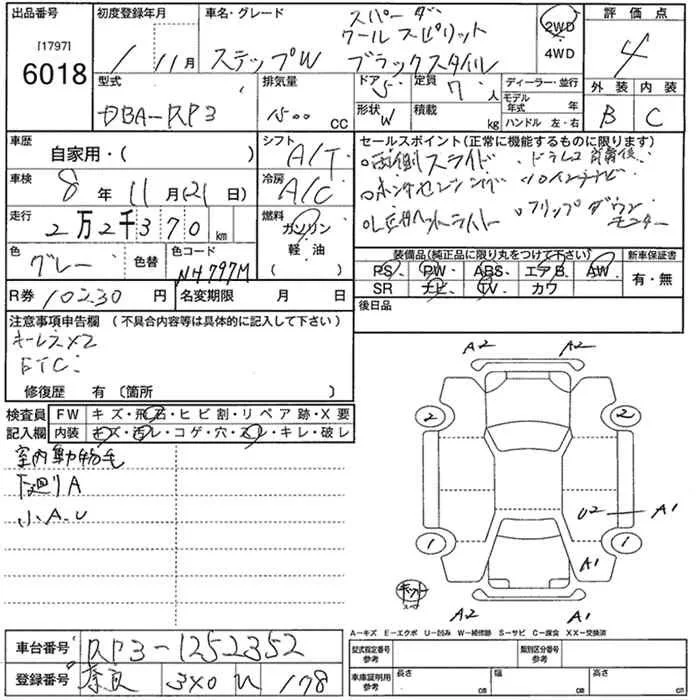 出品番号 初度登録年月 車名・グレード スパーダ 2WD 評価点
[1797] クールスピリット 4WD 4
6018 1年 11月 ステップW ブラックスタイル 外装 内装
型式 排気量 ドア 定員 7人 ディーラー・並行 B C
DBA-RP3 1500 cc 5 モデル年式 年
形状 W 積載 kg ハンドル 左・右
車歴 シフト セールスポイント(正常に機能するものに限ります)
自家用・( ) A/T 両側スライド ドラレコ前後
車検 冷房
8年 11月(21日) A/C ホンダセンシング 10インチナビ
走行 燃料
2万2千370km ガソリン LEDヘッドライト フリップダウンモニター
色 色替 色コード 軽油
グレー NH797M ( ) 装備品(純正品に限り丸をつけて下さい) 新車保証書
PS、 PW、 ABS、 エアB、 AW、 有・無
R券 10230円 名変期限 月 日 SR ナビ TV カワ
後日品
注意事項申告欄 (不具合内容等は具体的に記入して下さい)
キーレス×2
ETC
修復歴 有 〔箇所 〕
検査員 FW キズ・飛石・ヒビ割・リペア跡・X要
記入欄 内装 キズ・汚レ・コゲ・穴・スレ・キレ・破レ
室内動物毛
下廻りA
小A、U
A2 A2
2 2
U2 A1
1 1
A1
キット
A2 A1
A-キズ E-エクボ U-凹み W-補修跡 S-サビ C-腐食 XX-交換済
車台番号 RP3-1252352 型式指定番号 参考 類別区分番号 参考
登録番号 奈良 340 ひ 178 車庫証明用 参考 長さ cm 幅 cm 高さ cm